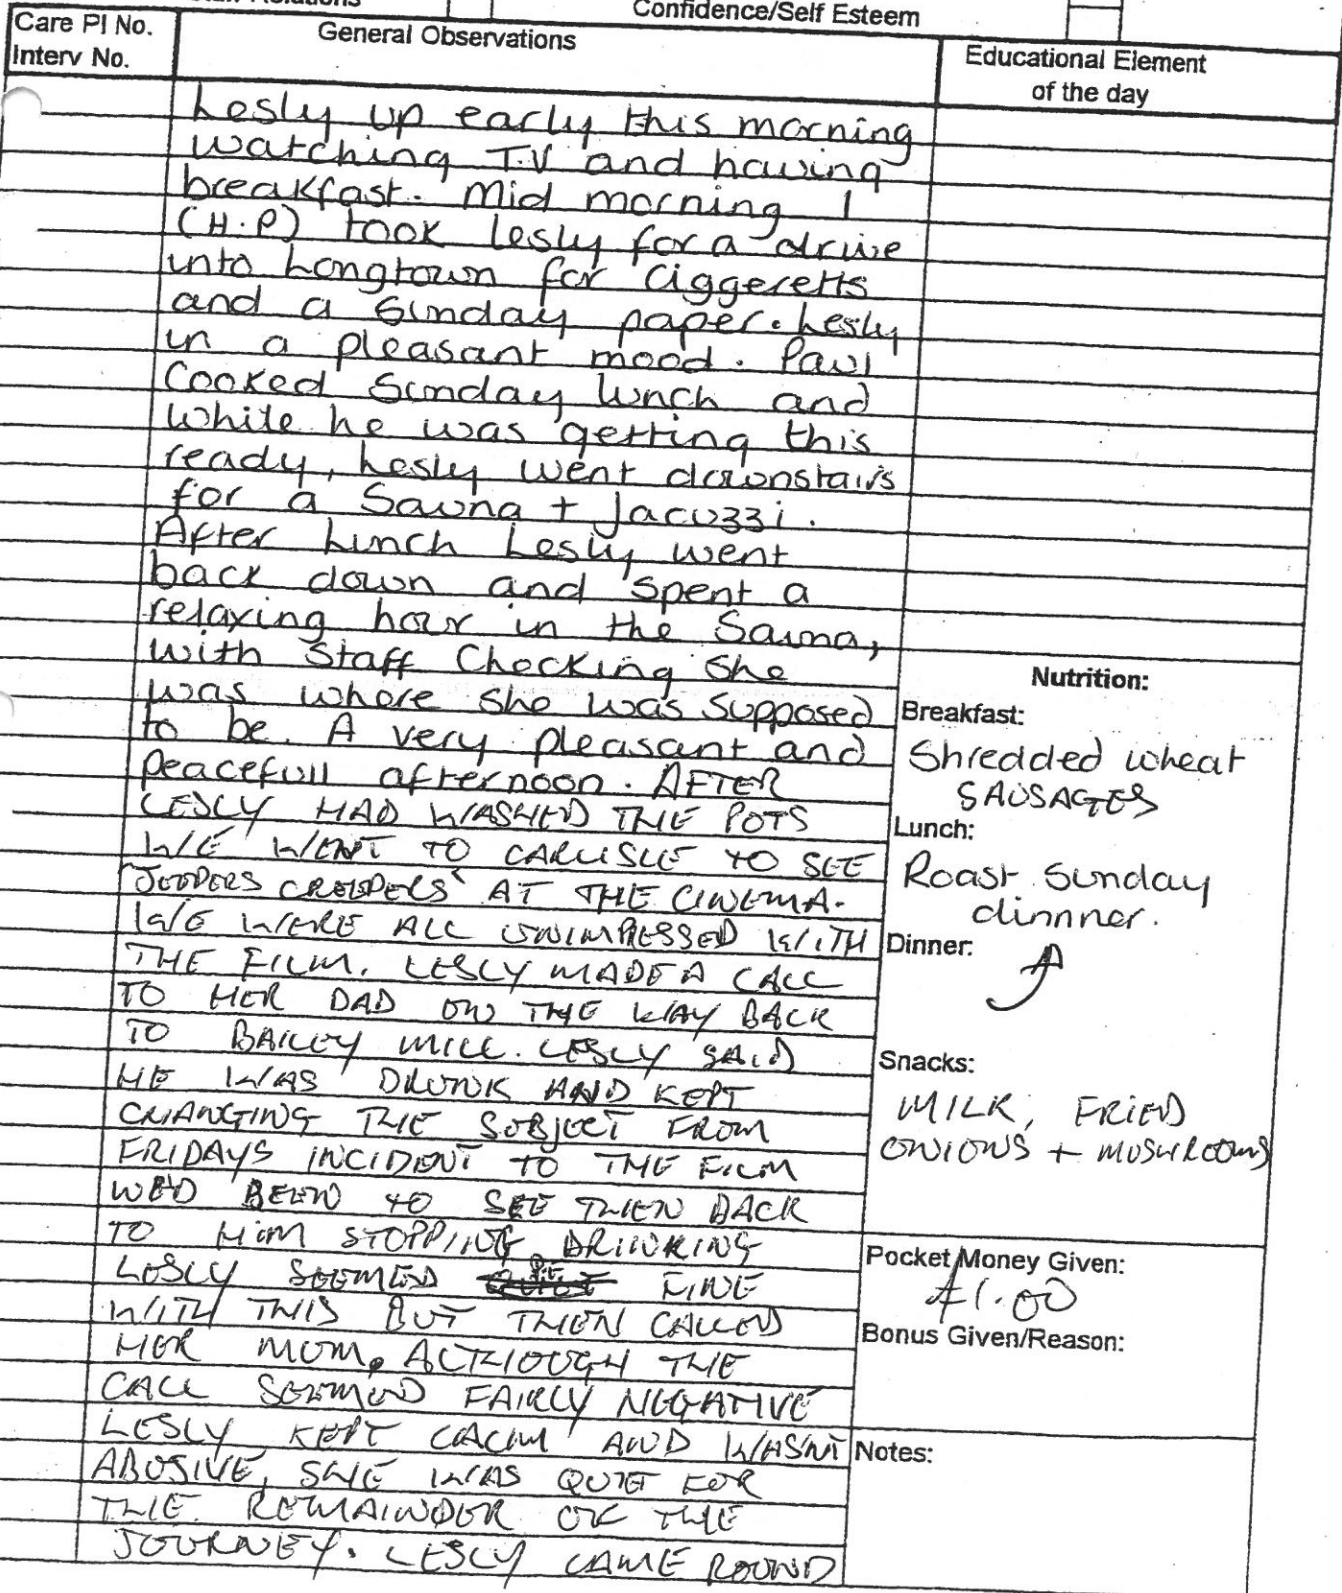 Relations
Confidence/Self Esteem
Care Pl No.
Interv No.
General Observations
Educational Element
of the day
Lesly up early this morning
watching T.V and having
breakfast. Mid morning I
(H.P) took Lesly for a drive
into Longtown for Ciggeretts
and a Sunday paper. Lesly
in a pleasant mood. Paul
Cooked Sunday lunch and
while he was getting this
ready, Lesly went downstairs
for a Sauna + Jacuzzi.
After Lunch Lesly went
back down and spent a
relaxing hour in the Sauna,
with Staff Checking She
was where she was Supposed
to be. A very pleasant and
Peacefull afternoon. AFTER
LESLY HAD WASHED THE POTS
WE WENT TO CARLISLE TO SEE
'JEEPERS CREEPERS' AT THE CINEMA.
WE WERE ALL UNIMPRESSED WITH
THE FILM. LESLY MADE A CALL
TO HER DAD ON THE WAY BACK
TO BAILEY MILL. LESLY SAID
HE WAS DRUNK AND KEPT
CHANGING THE SUBJECT FROM
FRIDAYS INCIDENT TO THE FILM
WE'D BEEN TO SEE THEN BACK
TO HIM STOPPING DRINKING
LESLY SEEMED FINE
WITH THIS BUT THEN CALLED
HER MUM. ALTHOUGH THE
CALL SEEMED FAIRLY NEGATIVE
LESLY KEPT CALM AND WASNT
ABUSIVE, SHE WAS QUIET FOR
THE REMAINDER OF THE
JOURNEY. LESLY CAME ROUND
Nutrition:
Breakfast:
Shredded wheat
SAUSAGES
Lunch:
Roast Sunday
dinnner.
Dinner:
Snacks:
MILK, FRIED
ONIONS + MUSHROOMS
Pocket Money Given:
£1.00
Bonus Given/Reason:
Notes: